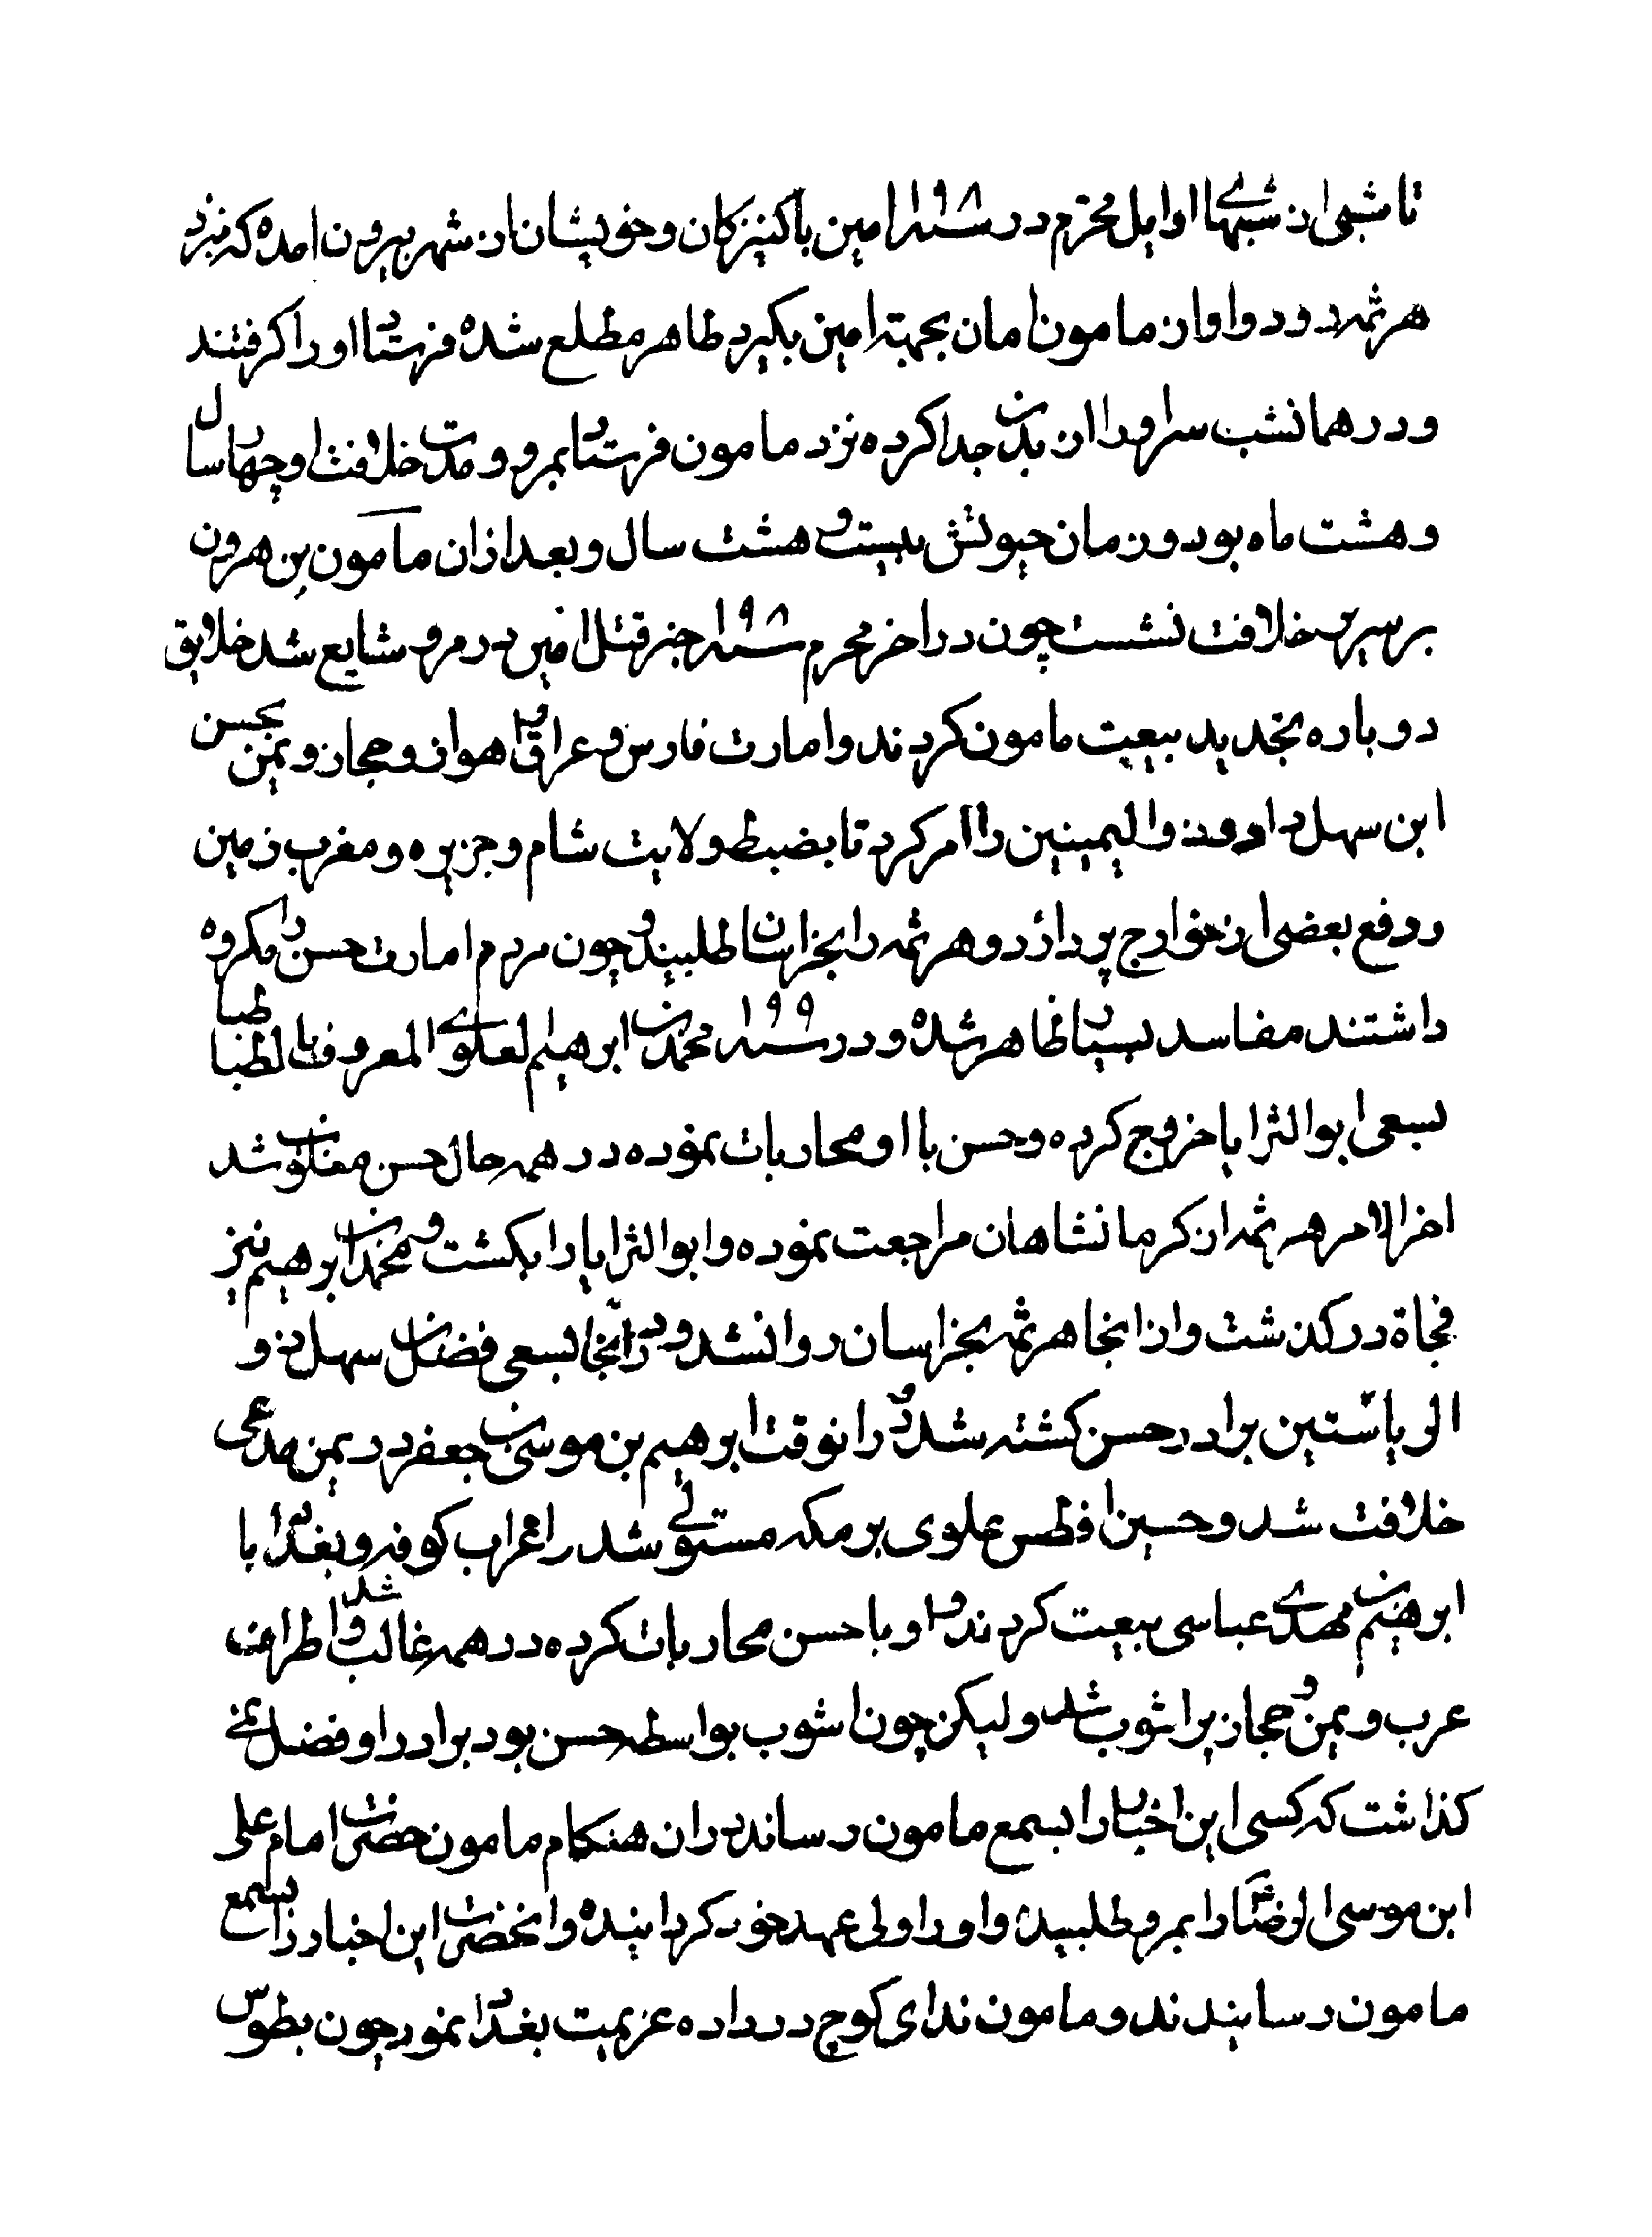 تا شبی از شبهای اوایل محرم در سنه ۱۹۸ امین با کنیزکان و خویشان از شهر بیرون امده که بنزد
هرثمه رود و او از مامون امان بجهة امین بگیرد طاهر مطلع شده فرستاد او را کرفتند
و در همانشب سر او را از بدن جدا کرده نزد مامون فرستاد بمرو و مدت خلافت او چهار سال
و هشت ماه بود و زمان حیوتش بیست و هشت سال و بعد از ان مامون بن هرون
بر سریر خلافت نشست چون در اخر محرم سنه ۱۹۸ خبر قتل امین در مرو شایع شد خلایق
دوباره بتجدید بیعت مامون کردند و امارت فارس و عراق و اهواز و حجاز و یمن بحسن
ابن سهل داد و ذو الیمینین را امر کرد تا بضبط ولایت شام و جزیره و مغرب زمین
و دفع بعضی از خوارج پردازد و هرثمه را بخراسان طلبید و چون مردم امارت حسن را مکروه
داشتند مفاسد بسیار ظاهر شده و در سنه ۱۹۹ محمد بن ابرهیم العلوی المعروف بابالطبا طبا
بسعی ابوالثرایا خروج کرده و حسن با او محاربات نموده در همه حال حسن مغلوب شد
اخر الامر هرثمه از کرمانشاهان مراجعت نموده و ابوالثرایا را بکشت و محمد بن ابرهیم نیز
فجاة درکذشت و از انجا هرثمه بخراسان روانشد و در انجا بسعی فضل بن سهل ذو
الریاستین برادر حسن کشته شد و در انوقت ابرهیم بن موسی بن جعفر در یمن مدعی
خلافت شد و حسین افطس علوی بر مکه مستولی شد اعراب کوفه و بغداد با
ابرهیم بن مهدی عباسی بیعت کردند و او با حسن محاربات کرده در همه غالب شد و اطراف
عرب و یمن و حجاز پر اشوب شد ولیکن چون اشوب بواسطه حسن بود برادر او فضل نمی
کذاشت که کسی این اخبار را بسمع مامون رساند در ان هنکام مامون حضرت امام علی
ابن موسی الرضا را بمرو طلبیده و او را ولی عهد خود کردانیده و انحضرت این اخبار را بسمع
مامون رسانیدند و مامون ندای کوچ در داده عزیمت بغداد نمود چون بطوس